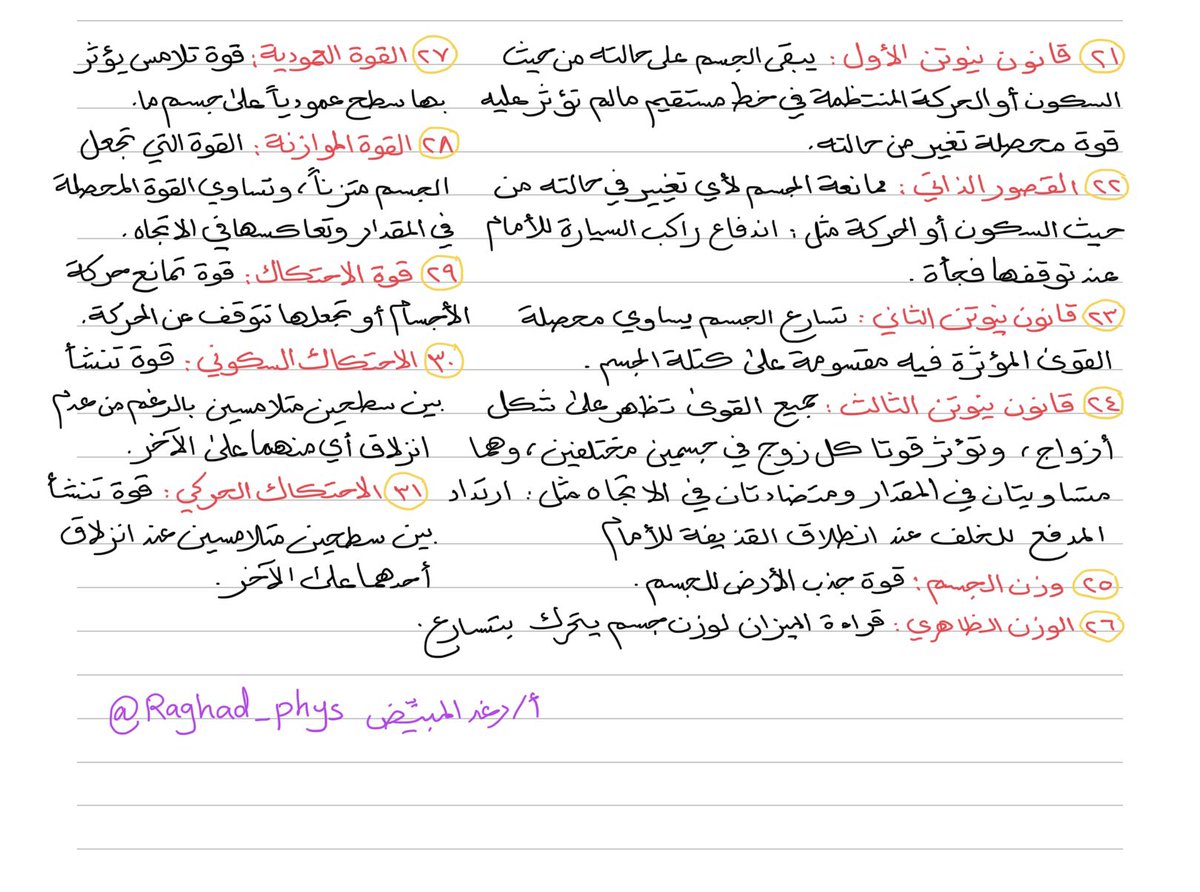 ٢١ قانون نيوتن الأول: يبقى الجسم على حالته من حيث
السكون أو الحركة المنتظمة في خط مستقيم مالم تؤثر عليه
قوة محصلة تغير من حالته.
٢٢ القصور الذاتي: ممانعة الجسم لأي تغيير في حالته من
حيث السكون أو الحركة مثل: اندفاع راكب السيارة للأمام
عند توقفها فجأة.
٢٣ قانون نيوتن الثاني: تسارع الجسم يساوي محصلة
القوى المؤثرة فيه مقسومة على كتلة الجسم.
٢٤ قانون نيوتن الثالث: جميع القوى تظهر على شكل
أزواج، وتؤثر قوتا كل زوج في جسمين مختلفين، وهما
متساويتان في المقدار ومتضادتان في الاتجاه مثل: ارتداد
المدفع للخلف عند انطلاق القذيفة للأمام
٢٥ وزن الجسم: قوة جذب الأرض للجسم.
٢٦ الوزن الظاهري: قراءة الميزان لوزن جسم يتحرك بتسارع.
٢٧ القوة العمودية: قوة تلامس يؤثر
بها سطح عمودياً على جسم ما.
٢٨ القوة الموازنة: القوة التي تجعل
الجسم متزناً، وتساوي القوة المحصلة
في المقدار وتعاكسها في الاتجاه.
٢٩ قوة الاحتكاك: قوة تمانع حركة
الأجسام أو تجعلها تتوقف عن الحركة.
٣٠ الاحتكاك السكوني: قوة تنشأ
بين سطحين متلامسين بالرغم من عدم
انزلاق أي منهما على الآخر.
٣١ الاحتكاك الحركي: قوة تنشأ
بين سطحين متلامسين عند انزلاق
أحدهما على الآخر.
أ/رغد المبيّض @Raghad_phys